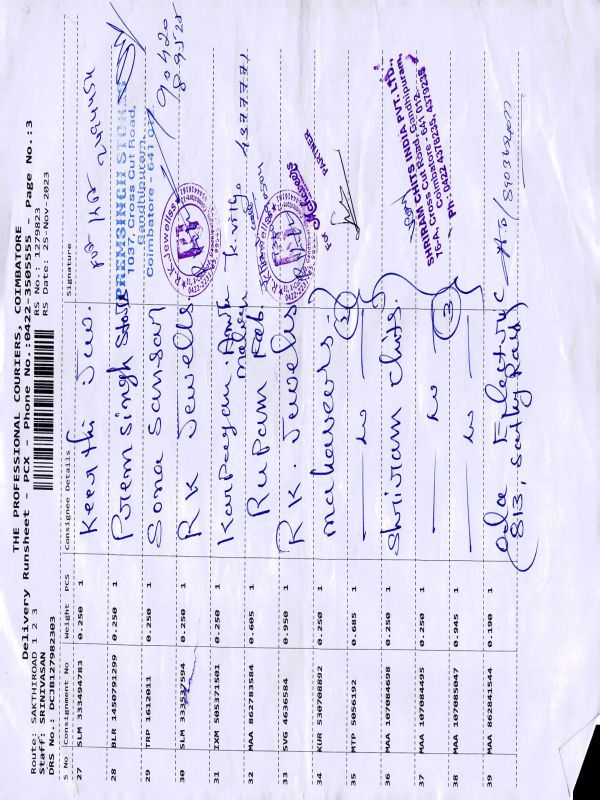 THE PROFESSIONAL COURIERS, COIMBATORE
Delivery Runsheet - PCX - Phone No.:0422-3505555 Page No.:3
Route: SAKTHIROAD 1 2 3
RS No.: 1279823
Staff: SRINIVASAN
RS Date: 25-Nov-2023
DRS No.: DCJB127982303
S No Consignment No Weight PCS Consignee Details Signature
27 SLM 333494783 0.250 1 Keerthi Jew.
28 BLR 1450791299 0.250 1 Prem Singh
PREMSINGH
1037, Cross Cut Road,
Coimbatore - 641 0
29 TRP 1612011 0.250 1 Sona Sansar
30 SLM 333537594 0.250 1 RK Jewells
R.K.Jewellss
31 IXM 505371501 0.250 1 Karpagam
32 MAA 862783584 0.605 1 Rupam Fab.
33 SVG 4636584 0.950 1 RK. Jewells
R.K.Jewellss
34 KUR 530708892 0.250 1 mahaveers
PARTNER
35 MTP 5056192 0.685 1 2
36 MAA 107084698 0.250 1 Shriram chits.
SHRIRAM CHITS INDIA PVT. LTD.,
75-A, Cross Cut Road, Gandhipuram,
Coimbatore - 641 012.
Ph: 0422 4378235, 4379235
37 MAA 107084495 0.250 1
38 MAA 107085047 0.945 1 3
39 MAA 862841544 0.190 1